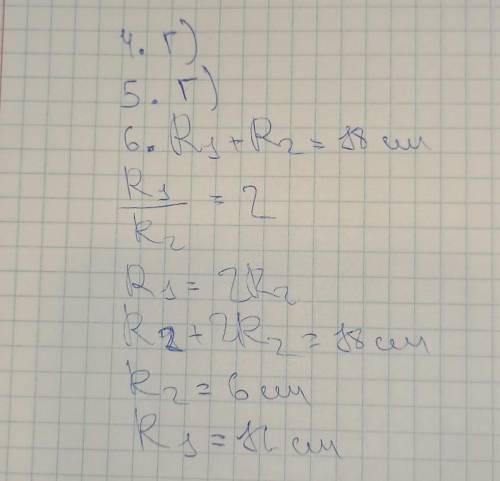 4. г)
5. г)
6. R₁ + R₂ = 18 см
R₁/R₂ = 2
R₁ = 2R₂
R₂ + 2R₂ = 18 см
R₂ = 6 см
R₁ = 12 см